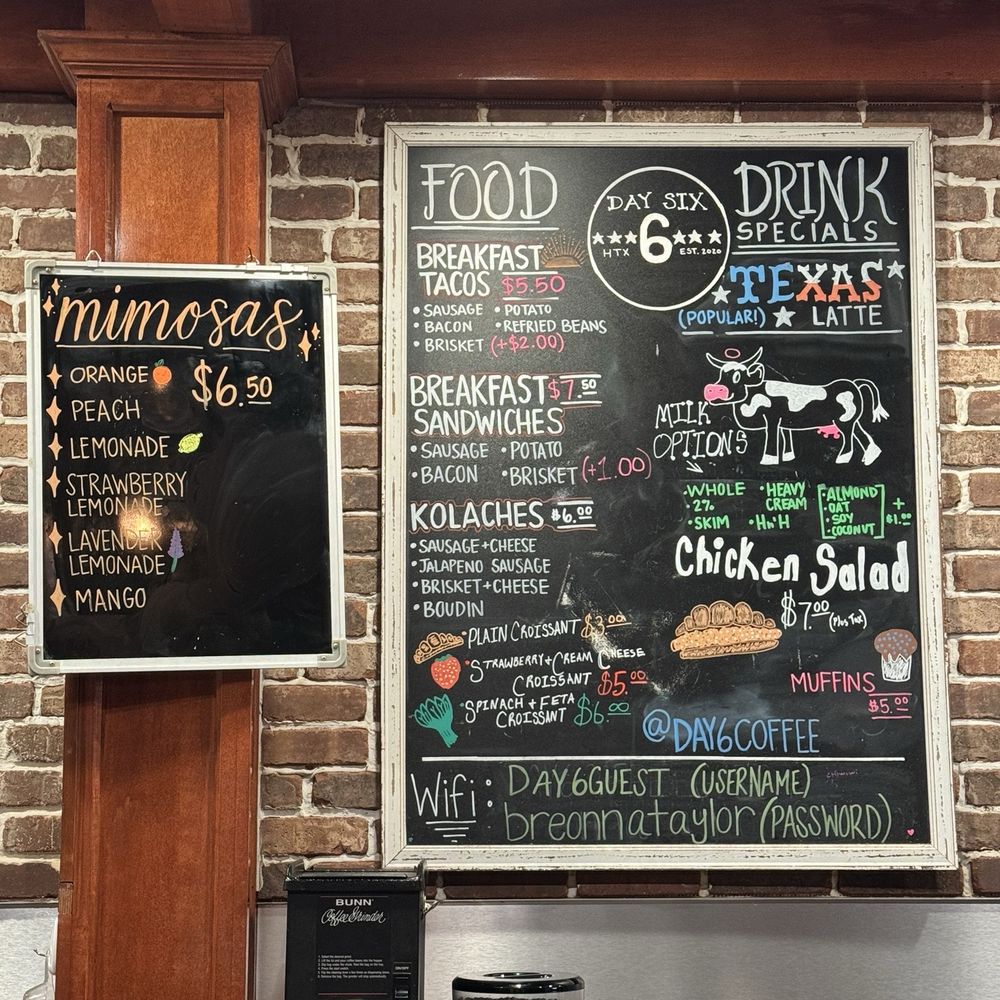 mimosas
ORANGE $6.50
PEACH
LEMONADE
STRAWBERRY
LEMONADE
LAVENDER
LEMONADE
MANGO
FOOD
BREAKFAST
TACOS $5.50
• SAUSAGE • POTATO
• BACON • REFRIED BEANS
• BRISKET (+$2.00)
BREAKFAST $7.50
SANDWICHES
• SAUSAGE • POTATO
• BACON • BRISKET (+1.00)
KOLACHES $6.00
• SAUSAGE + CHEESE
• JALAPENO SAUSAGE
• BRISKET + CHEESE
• BOUDIN
• PLAIN CROISSANT $3.00
• STRAWBERRY + CREAM CHEESE
CROISSANT $5.00
• SPINACH + FETA
CROISSANT $6.00
DAY SIX
6
HTX EST. 2020
DRINK
SPECIALS
TEXAS
(POPULAR!) LATTE
MILK
OPTIONS
• WHOLE • HEAVY
CREAM
• 2%
• SKIM • H n' H
• ALMOND
• OAT
• SOY
• COCONUT
+
$1.00
Chicken Salad
$7.00 (Plus Tax)
MUFFINS
$5.00
@DAY6COFFEE
Wifi: DAY6GUEST (USERNAME)
breonnataylor (PASSWORD)
BUNN
Coffee Grinder
ON/OFF